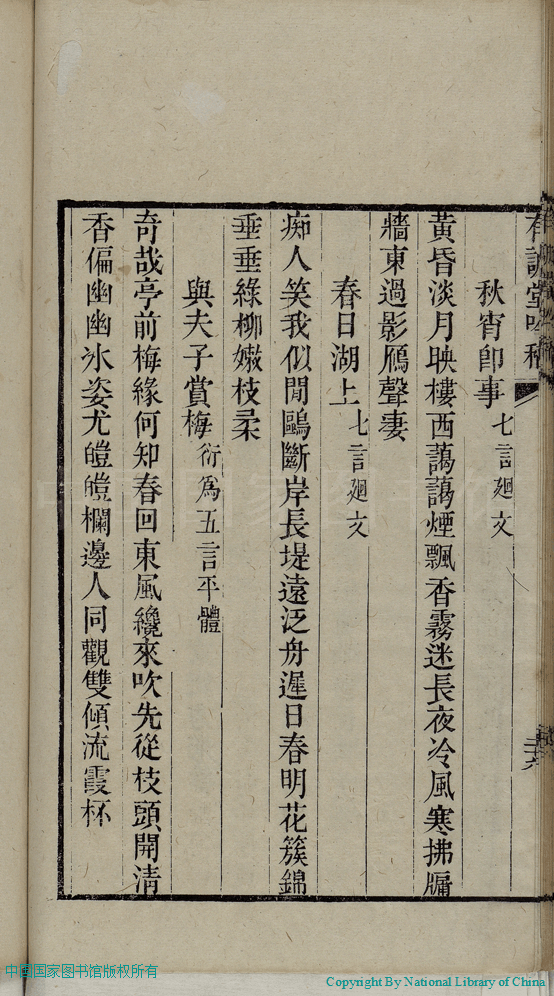 秋宵卽事 七言廻文
黃昏淡月映樓西藹藹煙飄香霧迷長夜冷風寒拂牖
牆東過影鴈聲淒
春日湖上 七言廻文
痴人笑我似閒鷗斷岸長堤遠泛舟遲日春明花簇錦
垂垂綠柳嫩枝柔
與夫子賞梅 衍爲五言平體
奇哉亭前梅緣何知春回東風纔來吹先從枝頭開淸
香偏幽幽冰姿尤皚皚欄邊人同觀雙傾流霞杯
中国国家图书馆版权所有
Copyright By National Library of China